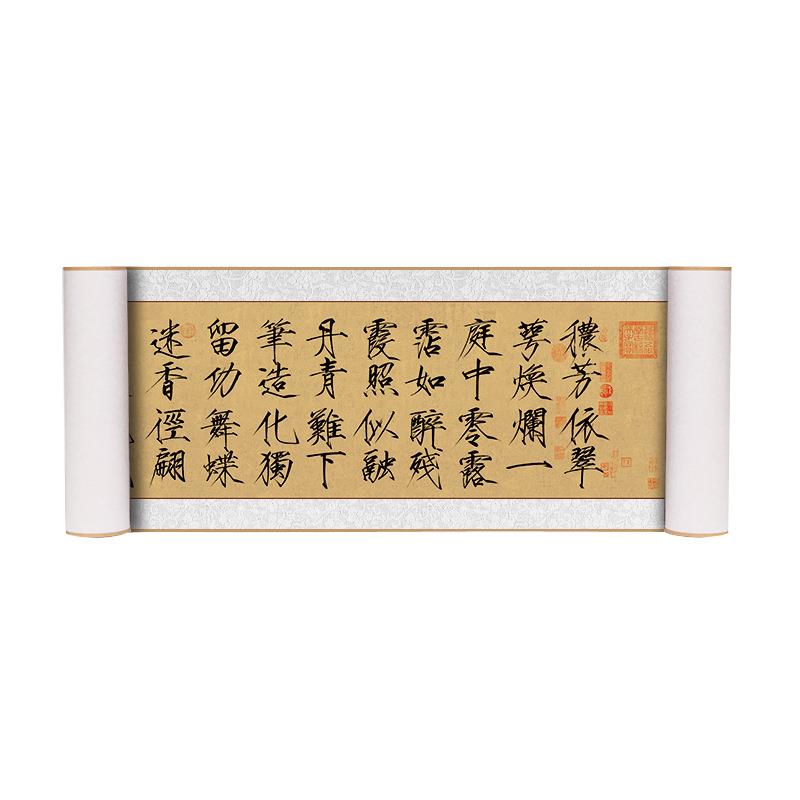 穠芳依翠
萼煥爛一
庭中零露
霑如醉殘
霞照似融
丹青難下
筆造化獨
留功舞蝶
迷香徑翩